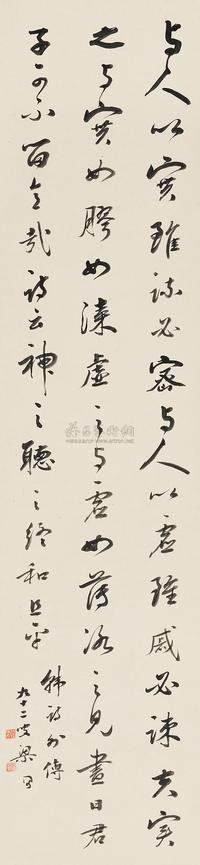 与人以实虽疏必密与人以虚虽戚必疎夫实
之与实如胶如漆虚之与虚如薄冰之见昼日君
子可不留意哉诗云神之听之终和且平
韩诗外传
九十二叟梁